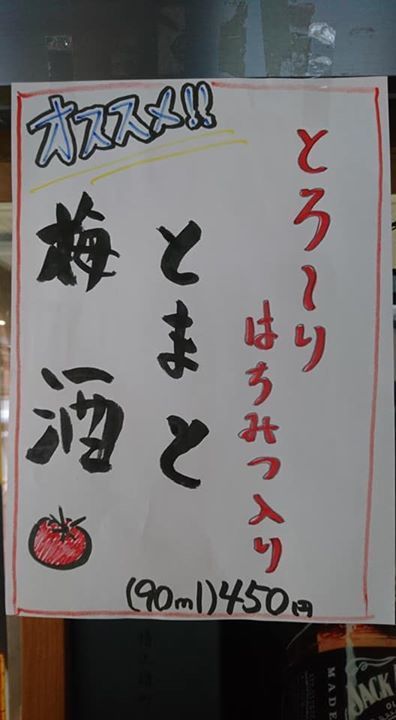 オススメ!!
とろ〜り
はちみつ入り
とまと
梅酒
(90ml)450円
JACK
MADE